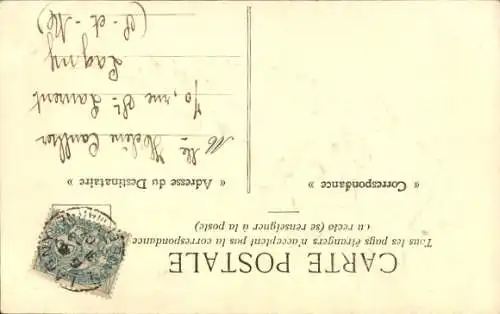 CARTE POSTALE
Tous les pays étrangers n'acceptent pas la correspondance
au recto (se renseigner à la poste)
« Correspondance »
« Adresse du Destinataire »
Mlle
70, rue St Laurent
Lagny
(S.-et-Me)